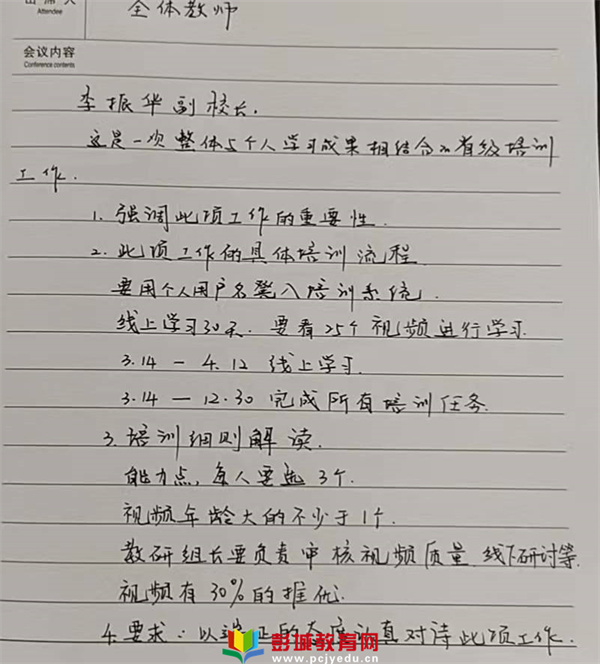 出席人
Attendee
全体教师
会议内容
Conference contents
李振华副校长.
这是一次整体与个人学习成果相结合的省级培训
工作.
1. 强调此项工作的重要性.
2. 此项工作的具体培训流程.
要用个人用户名登入培训系统.
线上学习30天. 要看25个视频进行学习.
3.14 — 4.12 线上学习.
3.14 — 12.30 完成所有培训任务.
3. 培训细则解读.
能力点, 每人要选3个.
视频年龄大的不少于1个.
教研组长要负责审核视频质量 线下研讨等.
视频有30%的推优.
4. 要求: 以端正的态度认真对待此项工作.
彭城教育网
www.pcjyedu.cn